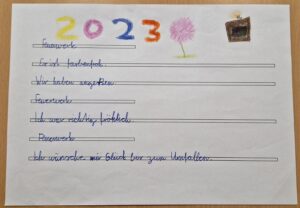 2023
Feuerwerk
Es ist farbenfroh.
Wir haben angestoßen.
Feuerwerk
Ich war richtig fröhlich.
Feuerwerk
Ich wünsche mir Glück bis zum Umfallen.